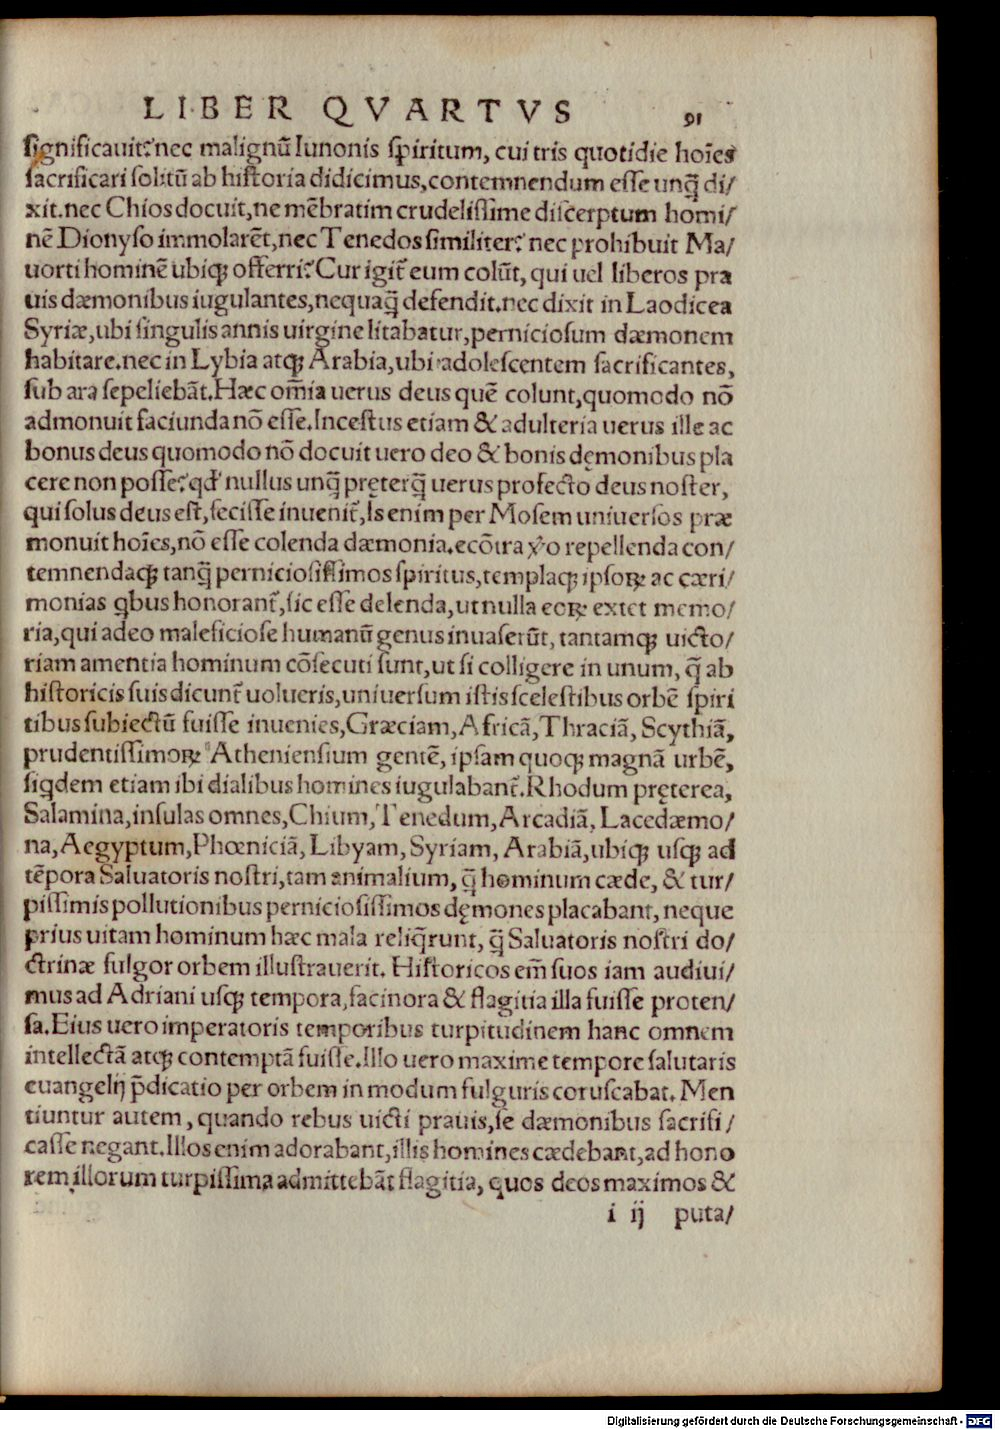 LIBER QVARTVS 91
ſignificauit?nec malignū Iunonis ſpiritum, cui tris quotidie hoı̄es
ſacrificari ſolitū ab hiſtoria didicimus,contemnendum eſſe unq̄ di/
xit.nec Chios docuit,ne mēbratim crudeliſſime diſcerptum homi/
nē Dionyſo immolarēt,nec Tenedos ſimiliter?nec prohibuit Ma/
uorti hominē ubiqꝫ offerri?Cur igit̄ eum colūt, qui uel liberos pra
uis dæmonibus iugulantes,nequaq̄ defendit.nec dixit in Laodicea
Syriæ,ubi ſingulis annis uirgine litabatur,pernicioſum dæmonem
habitare.nec in Lybia atqꝫ Arabia,ubi adoleſcentem ſacrificantes,
ſub ara ſepeliebāt.Hæc om̄ia uerus deus quē colunt,quomodo nō
admonuit faciunda nō eſſe.Inceſtus etiam & adulteria uerus ille ac
bonus deus quomodo nō docuit uero deo & bonis dęmonibus pla
cere non poſſe?qđ nullus unq̄ pręterq̄ uerus profecto deus noſter,
qui ſolus deus eſt,feciſſe inuenit̄,Is enim per Moſem uniuerſos præ
monuit hoı̄es,nō eſſe colenda dæmonia.ecōtra ꝟo repellenda con/
temnendaqꝫ tanq̄ pernicioſiſſimos ſpiritus,templaqꝫ ipſoꝝ ac cæri/
monias qbus honorant̄,ſic eſſe delenda,ut nulla eoꝝ extet memo/
ria,qui adeo maleficioſe humanū genus inuaſerūt, tantamqꝫ uicto/
riam amentia hominum cōſecuti ſunt,ut ſi colligere in unum, q̄ ab
hiſtoricis ſuis dicunt̄ uolueris,uniuerſum iſtis ſceleſtibus orbē ſpiri
tibus ſubiectū fuiſſe inuenies,Græciam,Africā,Thraciā, Scythiā,
prudentiſſimoꝝ Athenienſium gentē, ipſam quoqꝫ magnā urbē,
ſiqdem etiam ibi dialibus homines iugulabant̄.Rhodum pręterea,
Salamina,inſulas omnes,Chium,Tenedum,Arcadiā, Lacedæmo/
na,Aegyptum,Phœniciā, Libyam, Syriam, Arabiā,ubiqꝫ uſqꝫ ad
tēpora Saluatoris noſtri,tam animalium, q̄ hominum cæde, & tur/
piſſimis pollutionibus pernicioſiſſimos dęmones placabant, neque
prius uitam hominum hæc mala reliq̄runt, q̄ Saluatoris noſtri do/
ctrinæ fulgor orbem illuſtrauerit. Hiſtoricos em̄ ſuos iam audiui/
mus ad Adriani uſqꝫ tempora,facinora & flagitia illa fuiſſe proten/
ſa.Eius uero imperatoris temporibus turpitudinem hanc omnem
intellectā atqꝫ contemptā fuiſſe.Illo uero maxime tempore ſalutaris
euangelij p̄dicatio per orbem in modum fulguris coruſcabat. Men
tiuntur autem, quando rebus uicti prauis,ſe dæmonibus ſacrifi/
caſſe negant.Illos enim adorabant,illis homines cædebant,ad hono
rem illorum turpiſſima admittebāt flagitia, quos deos maximos &
i ij puta/
Digitalisierung gefördert durch die Deutsche Forschungsgemeinschaft - DFG